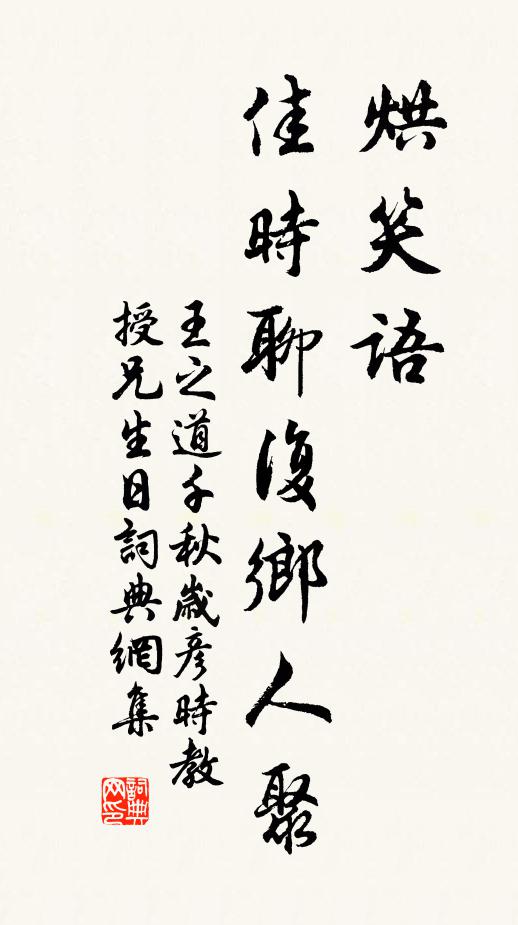 烘笑語
佳時聊復鄉人聚
王之道千秋歲彥時教
授兄生日詞典網集
詞典
网印